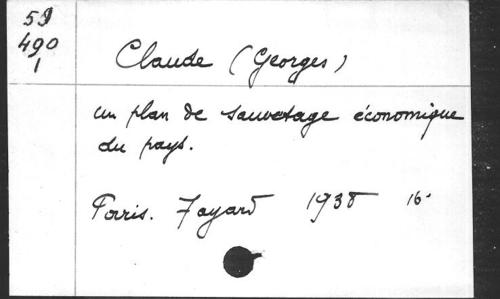 59
490
1
Claude (Georges)
un plan de sauvetage économique
du pays.
Paris. Fayard 1938 16°